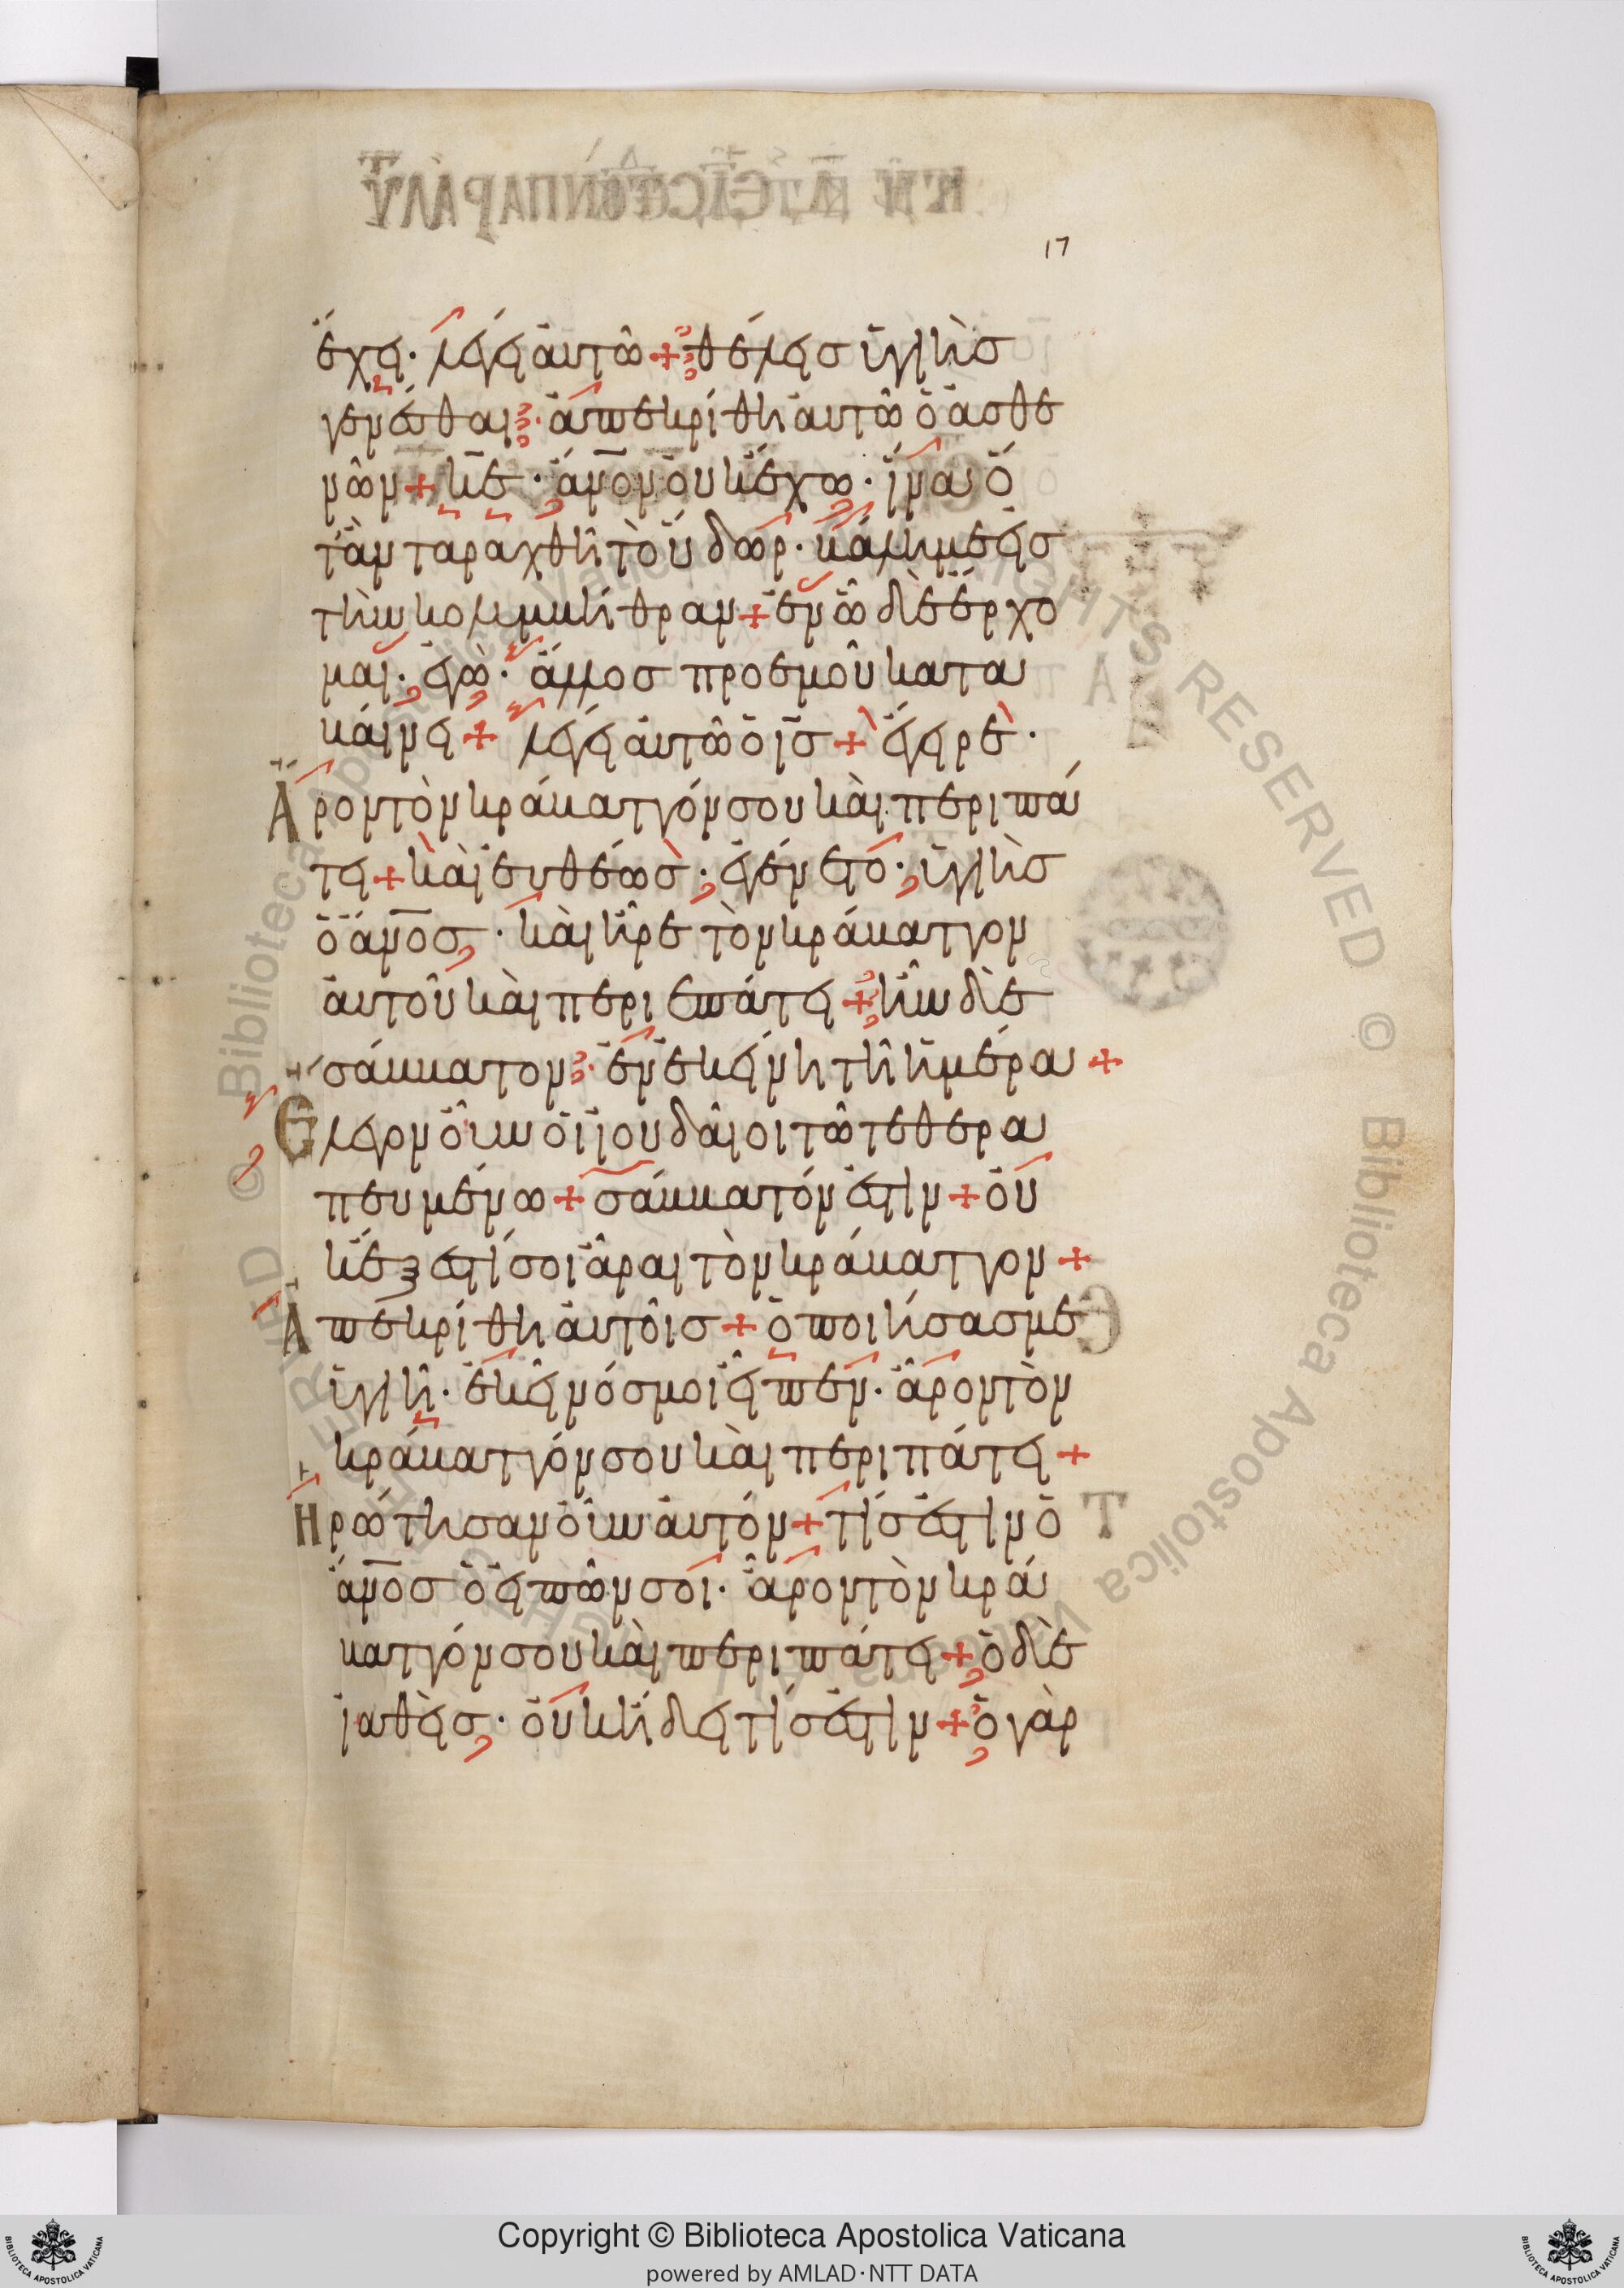 17
ἔχει· λέγει ἀυτῶ + θέλεισ ὑγιὴσ
γενέσθαι· ἀπεκρίθη ἀυτῶ ὁ ἀσθε
νῶν + κ̅ε̅· ἄν̅ο̅ν̅ οὐκ ἔχω· ἵνα ὅ
τὰν ταραχθῆ τὸ ὕδωρ· βάλη με εἰσ
τὴν κολυμβήθραν + ἐν ὧ δὲ ἔρχο
μαι· ἐγὼ· ἄλλοσ προ ἐμοῦ κατα
βάινει + λέγει ἀυτῶ ὁ ι̅σ̅ + ἔγειρε·
Ἆρον τὸν κράβαττόν σου καὶ περιπά
τει + καὶ ἐυθέωσ· ἐγένετο· ὑγιὴσ
ὁ ἄν̅ο̅σ̅· καὶ ἦρε τὸν κράβαττον
ἀυτοῦ καὶ περιεπάτει + ἦν δὲ
σάββατον· ἐν ἐκείνη τῆ ἡμέρα +
Ἔλεγον οὖν ὁι ἰουδᾶιοι τῶ τεθερα
πευμένω + σάββατόν ἐστιν + οὐ
κ ἔξεστί σοι ἆραι τὸν κράβαττον +
Ἀπεκρίθη ἀυτοῖσ + ὁ ποιήσασ με
ὑγιῆ· ἐκεῖνόσ μοι εἶπεν· ἆρον τὸν
κράβαττόν σου καὶ περιπάτει +
Ἠρώτησαν οὖν ἀυτόν + τίσ ἐστιν ὁ
ἄν̅ο̅σ̅ ὁ εἰπῶν σοι· ἆρον τὸν κρά
βαττόν σου καὶ περιπάτει + ὁ δὲ
ἰαθεὶσ· οὐκ ἤδει τίσ ἐστιν + ὁ γὰρ
Copyright © Biblioteca Apostolica Vaticana
powered by AMLAD·NTT DATA